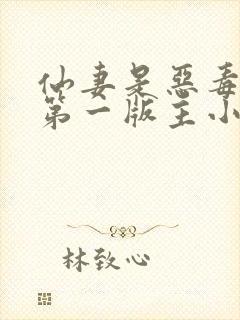 仙妻是惡毒
第一版主小
林致心